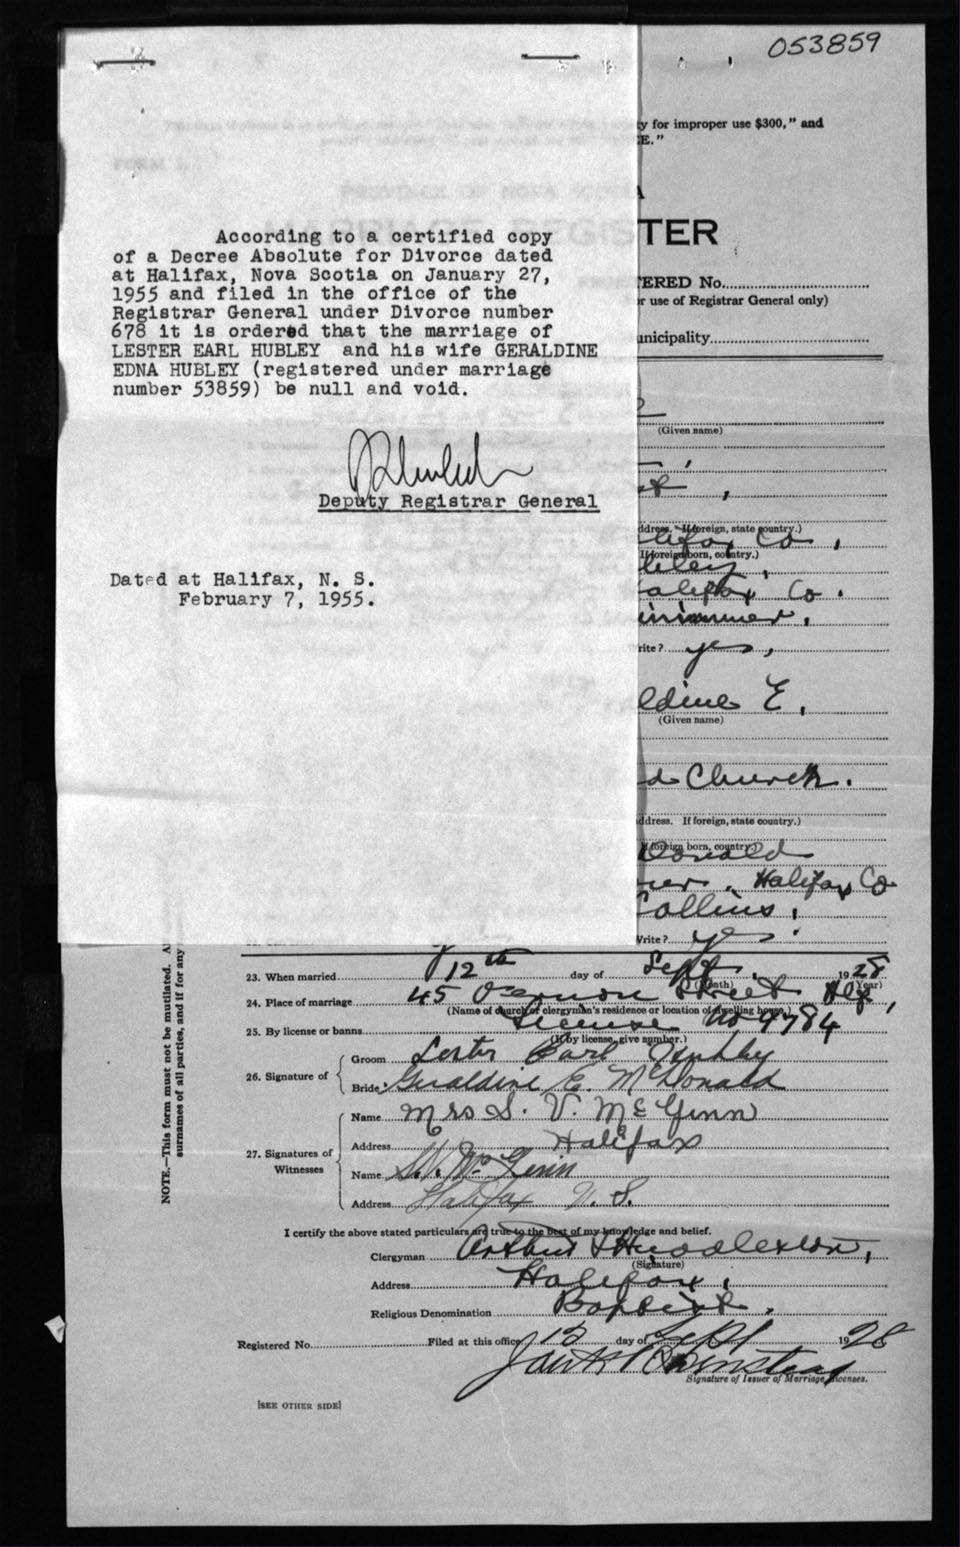 053859
y for improper use $300," and
E."
According to a certified copy
of a Decree Absolute for Divorce dated
at Halifax, Nova Scotia on January 27,
1955 and filed in the office of the
Registrar General under Divorce number
678 it is ordered that the marriage of
LESTER EARL HUBLEY and his wife GERALDINE
EDNA HUBLEY (registered under marriage
number 53859) be null and void.
Deputy Registrar General
Dated at Halifax, N. S.
February 7, 1955.
TER
ERED No.
r use of Registrar General only)
unicipality
(Given name)
ddress. If foreign, state country.)
lifax Co.
If foreign born, country.)
bley,
alifax Co.
rite? yes,
ldine E.
(Given name)
d Church.
ddress. If foreign, state country.)
foreign born, country.)
Donald
ner, Halifax Co
Collins,
Write? yes
NOTE.—This form must not be mutilated. A
surnames of all parties, and if for any
23. When married 12th day of Sept. 1928
(Month) (Year)
24. Place of marriage 45 Street Hfx,
(Name of church or clergyman's residence or location of dwelling house.)
25. By license or banns License No 9784
(If by license, give number.)
26. Signature of
Groom Lester Earl Hubley
Bride Geraldine E. McDonald
27. Signatures of Witnesses
Name Mrs S. V. McGinn
Address Halifax
Name S.V. McGinn
Address Halifax N. S.
I certify the above stated particulars are true to the best of my knowledge and belief.
Clergyman Arthur
(Signature)
Address Halifax,
Religious Denomination Baptist.
Registered No. Filed at this office 12 day of Sept 1928
Signature of Issuer of Marriage Licenses.
[SEE OTHER SIDE]